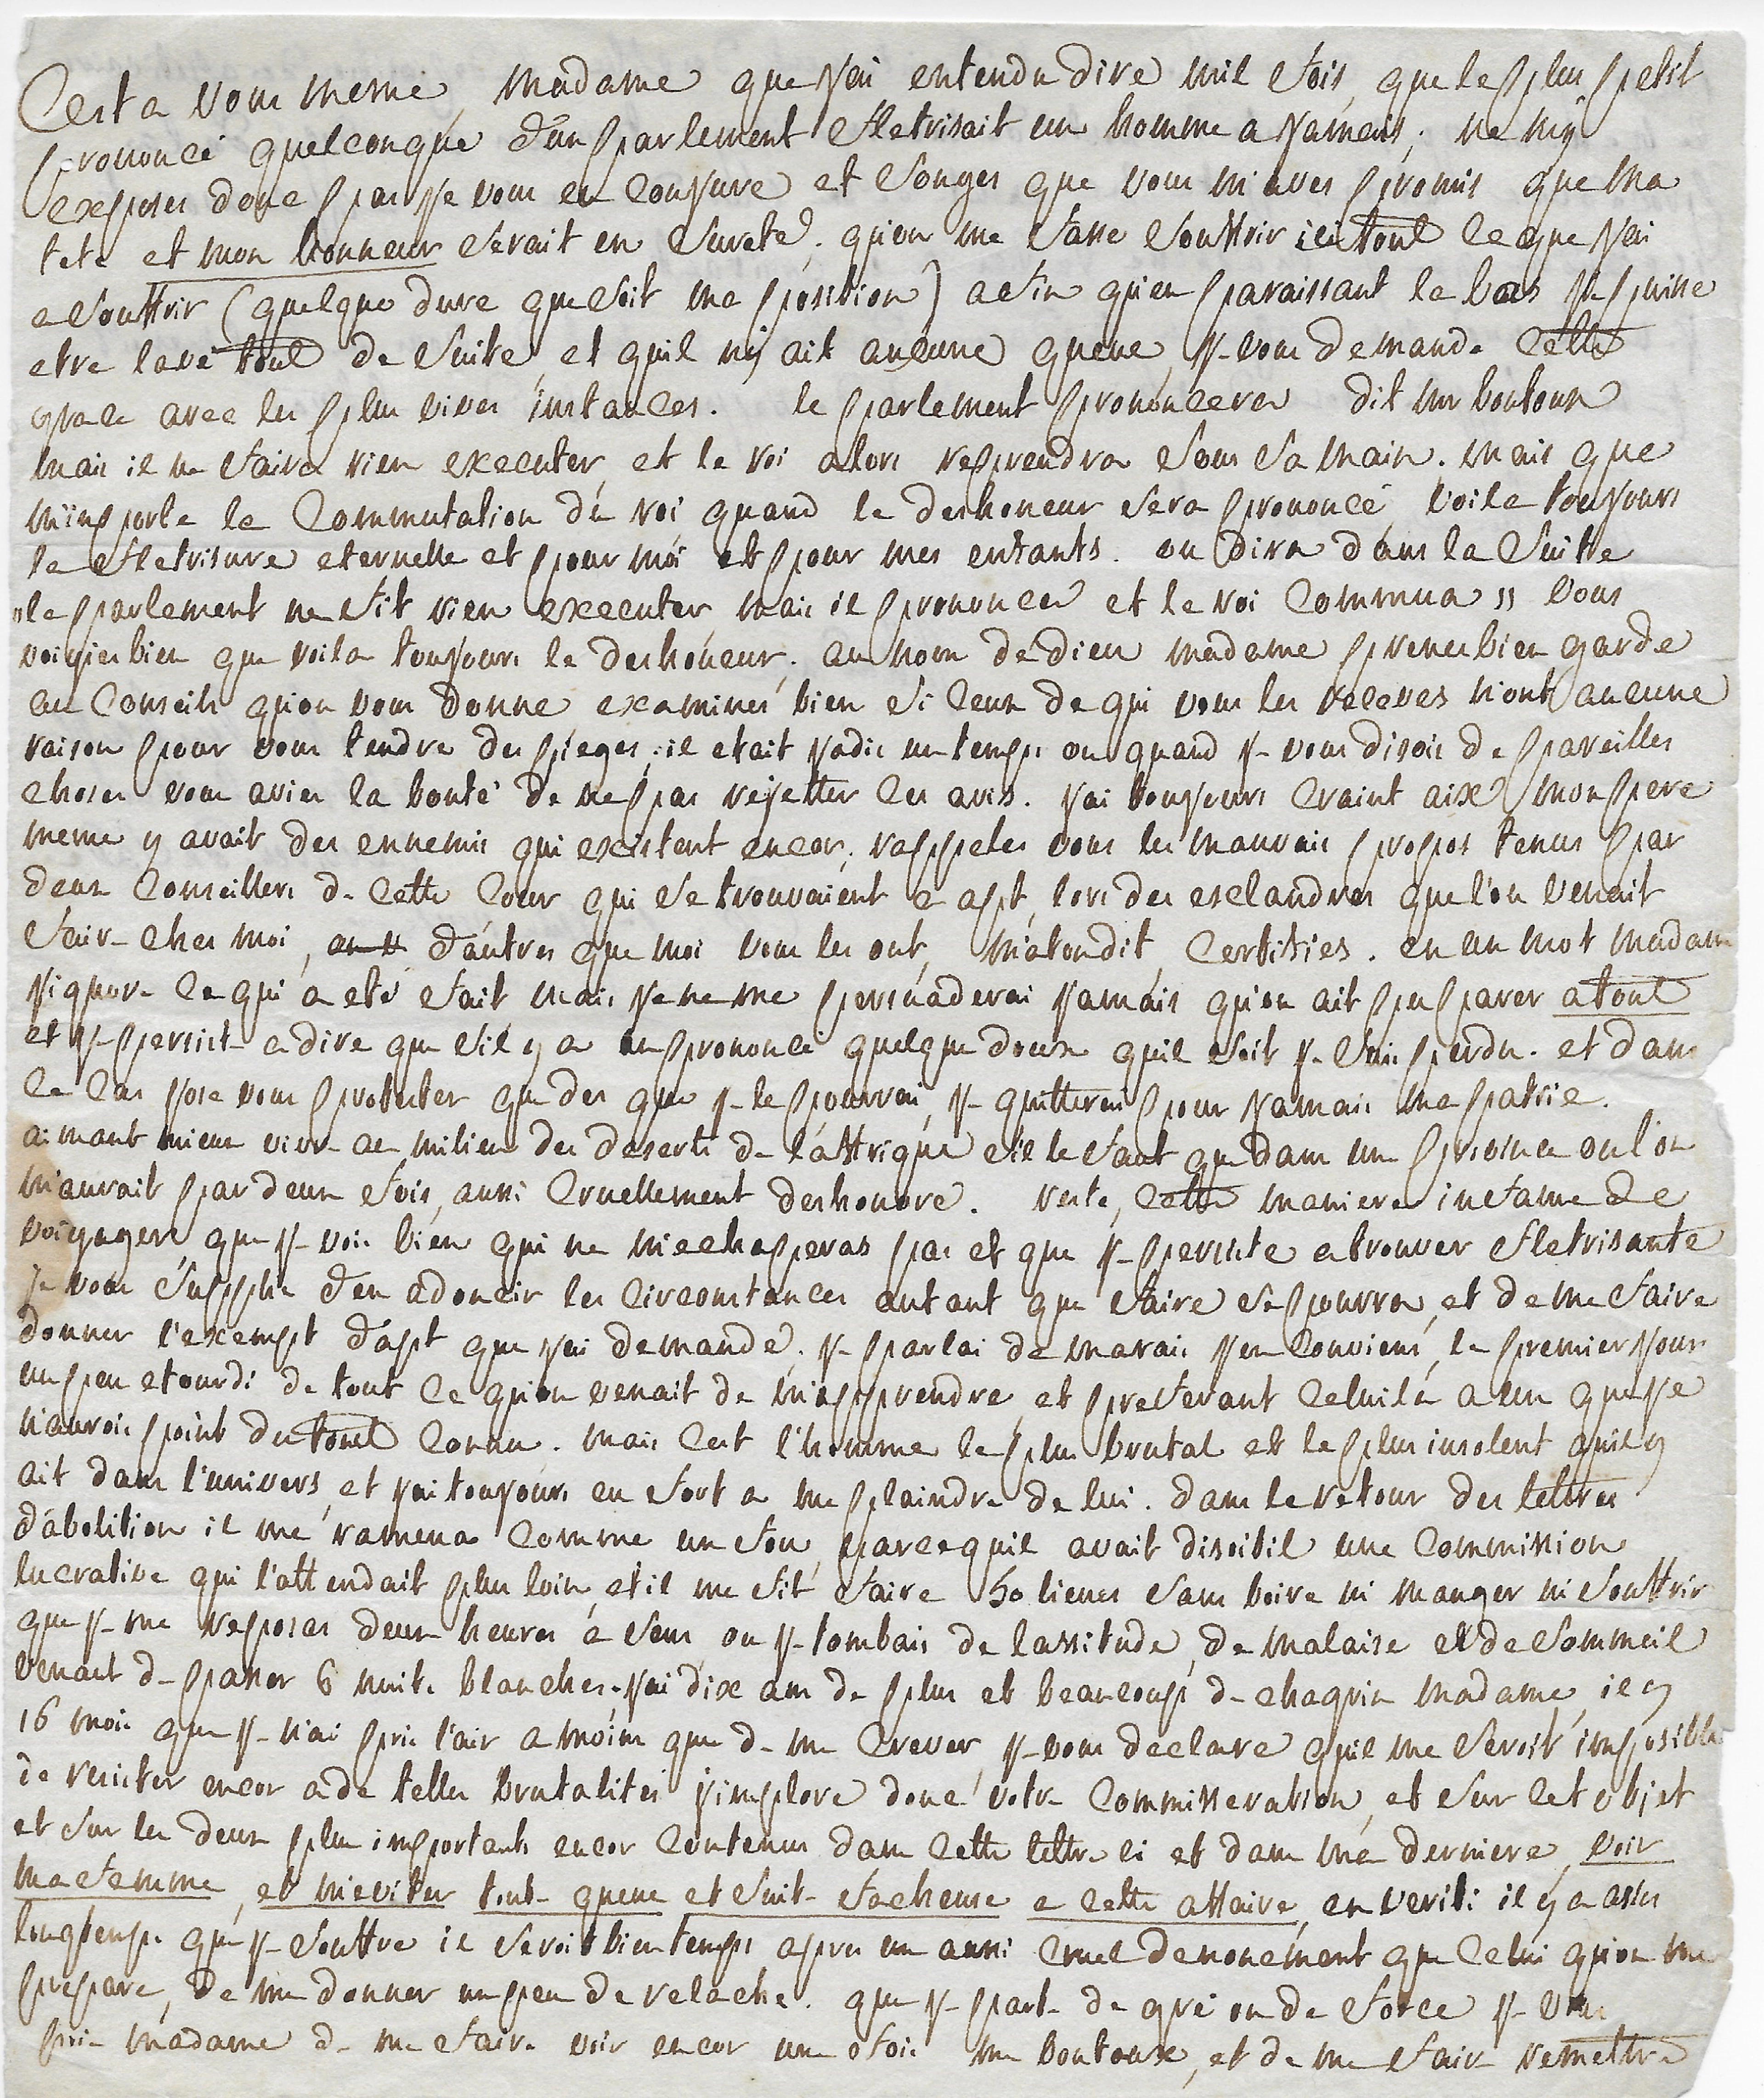 Cest a vous meme, madame que j'ai entendu dire mil fois, que le plus petit
prononcé quelconque d'un parlement fletrisait un homme a jamais; ne m'y
exposes donc pas je vous en conjure et songes que vous m'aves promis que ma
tete et mon honneur serait en sureté, qu'on me fasse souffrir ici tout ce que j'ai
a souffrir (quelque dure que soit ma position) afin qu'en paraissant la bas je puisse
etre lavé tout de suite, et quil n'y ait aucune queue, je vous demande cette
grace avec les plus vives instances. le parlement prononcera dit mr boutoux
mais il ne faira rien executer, et le roi alors reprendra sous sa main. mais que
m'importe la commutation du roi quand le deshoneur sera prononcé, voila toujours
la fletrisure eternelle et pour moi et pour mes enfants. on dira dans la suite
"le parlement ne fit rien executer mais il prononca et le roi commua" vous
voiyies bien que voila toujours le deshoneur. au nom de dieu madame prenes bien garde
au conseils qu'on vous donne examinés bien si ceux de qui vous les receves n'ont aucune
raison pour vous tendre des pieges; il etait jadis un temps ou quand je vous disois de pareilles
choses vous avies la bonté de ne pas rejetter ces avis. j'ai toujours craint aix, mon pere
meme y avait des ennemis qui existent encor; rappeles vous les mauvais propos tenus par
deux conseillers de cette cour qui se trouvaient a apt, lors des esclandres que l'on venait
faire ches moi, d'autres que moi vous les ont, m'atondit, certifiés. en un mot madame
j'ignore ce qui a eté fait mais je ne me persuaderai jamais qu'on ait pu parer a tout
et je persiste a dire que s'il y a un prononcé quelque doux quil soit je suis perdu. et dans
ce cas j'ose vous protester que des que je le pourrai, je quitterai pour jamais ma patrie.
aimant mieux vivre au milieu des deserts de l'affrique s'il le faut que dans une province ou l'on
m'aurait par deux fois, aussi cruellement deshonoré. reste, cette maniere infame de
voiyager, que je vois bien qui ne m'echaperas pas et que je persiste a trouver fletrisante
je vous supplie d'en adoucir les circonstances autant que faire se pourra, et de me faire
donner l'exempt d'apt que j'ai demandé. je parlai de marais j'en conviens, le premier jour
un peu etourdi de tout ce qu'on venait de m'apprendre, et preferant celui la a un que je
n'aurois point du tout connu. mais cest l'homme le plus brutal et le plus insolent quil y
ait dans l'univers, et j'ai toujours eu fort a me plaindre de lui. dans le retour des lettres
d'abolition il me ramena comme un fou, parcequil avait disoitil une commission
lucrative qui l'attendait plus loin, et il me fit faire 50 lieues sans boire ni manger ni souffrir
que je me reposas deux heures a sens ou je tombais de lassitude, de malaise et de sommeil
venant de passer 6 nuits blanches. j'ai dix ans de plus et beaucoup de chagrin madame, il y
16 mois que je n'ai pris l'air a moins que de me crever, je vous declare quil me seroit imposible
de resister encor a de telles brutalités j'implore donc votre commisseration, et sur cet objet
et sur les deux plus importants encor contenus dans cette lettre ci et dans ma derniere, voir
ma femme, et m'eviter toute queue et suite facheuse a cette affaire, en verité il y a asses
longtemps que je souffre il seroit bien temps apres un aussi cruel denouement que celui qu'on me
prepare, de me donner un peu de relache. que je parte de gré ou de force je vous
prie madame de me faire voir encor une fois mr boutoux, et de me faire remettre